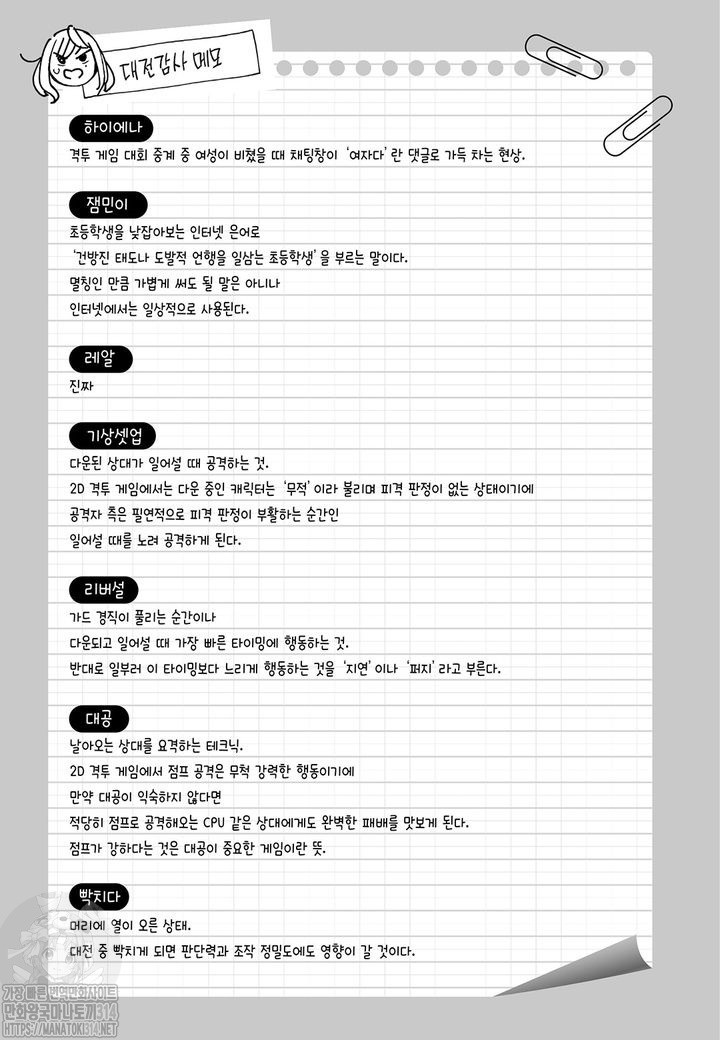 대전감사 메모
하이에나
격투 게임 대회 중계 중 여성이 비쳤을 때 채팅창이 '여자다'란 댓글로 가득 차는 현상.
잼민이
초등학생을 낮잡아보는 인터넷 은어로
'건방진 태도나 도발적 언행을 일삼는 초등학생'을 부르는 말이다.
멸칭인 만큼 가볍게 써도 될 말은 아니나
인터넷에서는 일상적으로 사용된다.
레알
진짜
기상셋업
다운된 상대가 일어설 때 공격하는 것.
2D 격투 게임에서는 다운 중인 캐릭터는 '무적'이라 불리며 피격 판정이 없는 상태이기에
공격자 측은 필연적으로 피격 판정이 부활하는 순간인
일어설 때를 노려 공격하게 된다.
리버설
가드 경직이 풀리는 순간이나
다운되고 일어설 때 가장 빠른 타이밍에 행동하는 것.
반대로 일부러 이 타이밍보다 느리게 행동하는 것을 '지연'이나 '퍼지'라고 부른다.
대공
날아오는 상대를 요격하는 테크닉.
2D 격투 게임에서 점프 공격은 무척 강력한 행동이기에
만약 대공이 익숙하지 않다면
적당히 점프로 공격해오는 CPU 같은 상대에게도 완벽한 패배를 맛보게 된다.
점프가 강하다는 것은 대공이 중요한 게임이란 뜻.
빡치다
머리에 열이 오른 상태.
대전 중 빡치게 되면 판단력과 조작 정밀도에도 영향이 갈 것이다.
가장 빠른 번역만화사이트
만화왕국마나토끼314
HTTPS://MANATOKI314.NET/